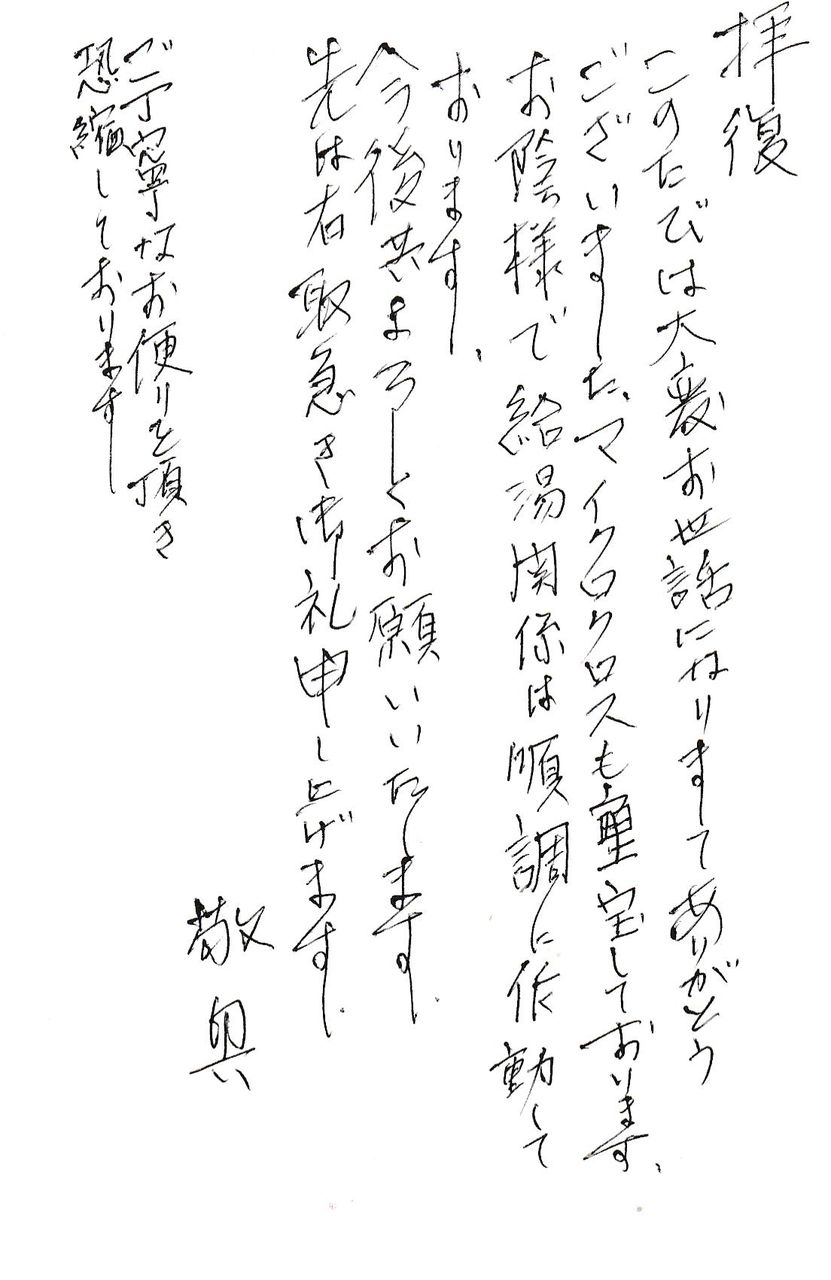 拝復
このたびは大変お世話になりましてありがとう
ございました。マイクロクロスも重宝しております。
お陰様で給湯関係は順調に作動して
おります。
今後共よろしくお願いいたします。
先は右取急ぎ御礼申し上げます。
敬具
ご丁寧なお便りを頂き
恐縮しております